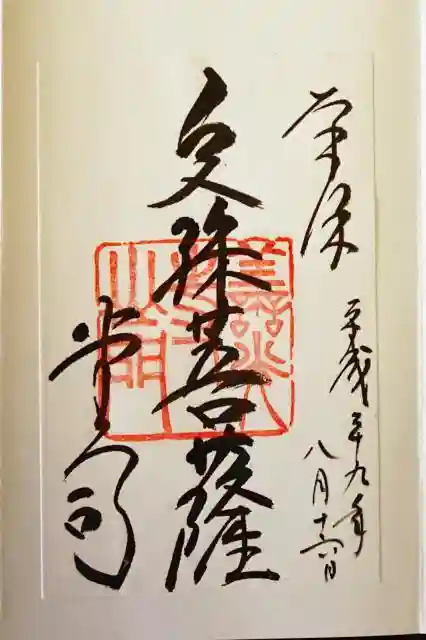 奉拝
平成二十九年
八月十六日
文殊菩薩
堂司